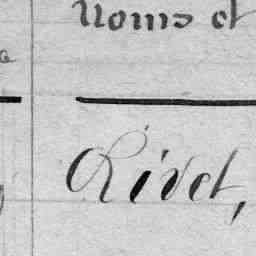 Noms et
Rivet,